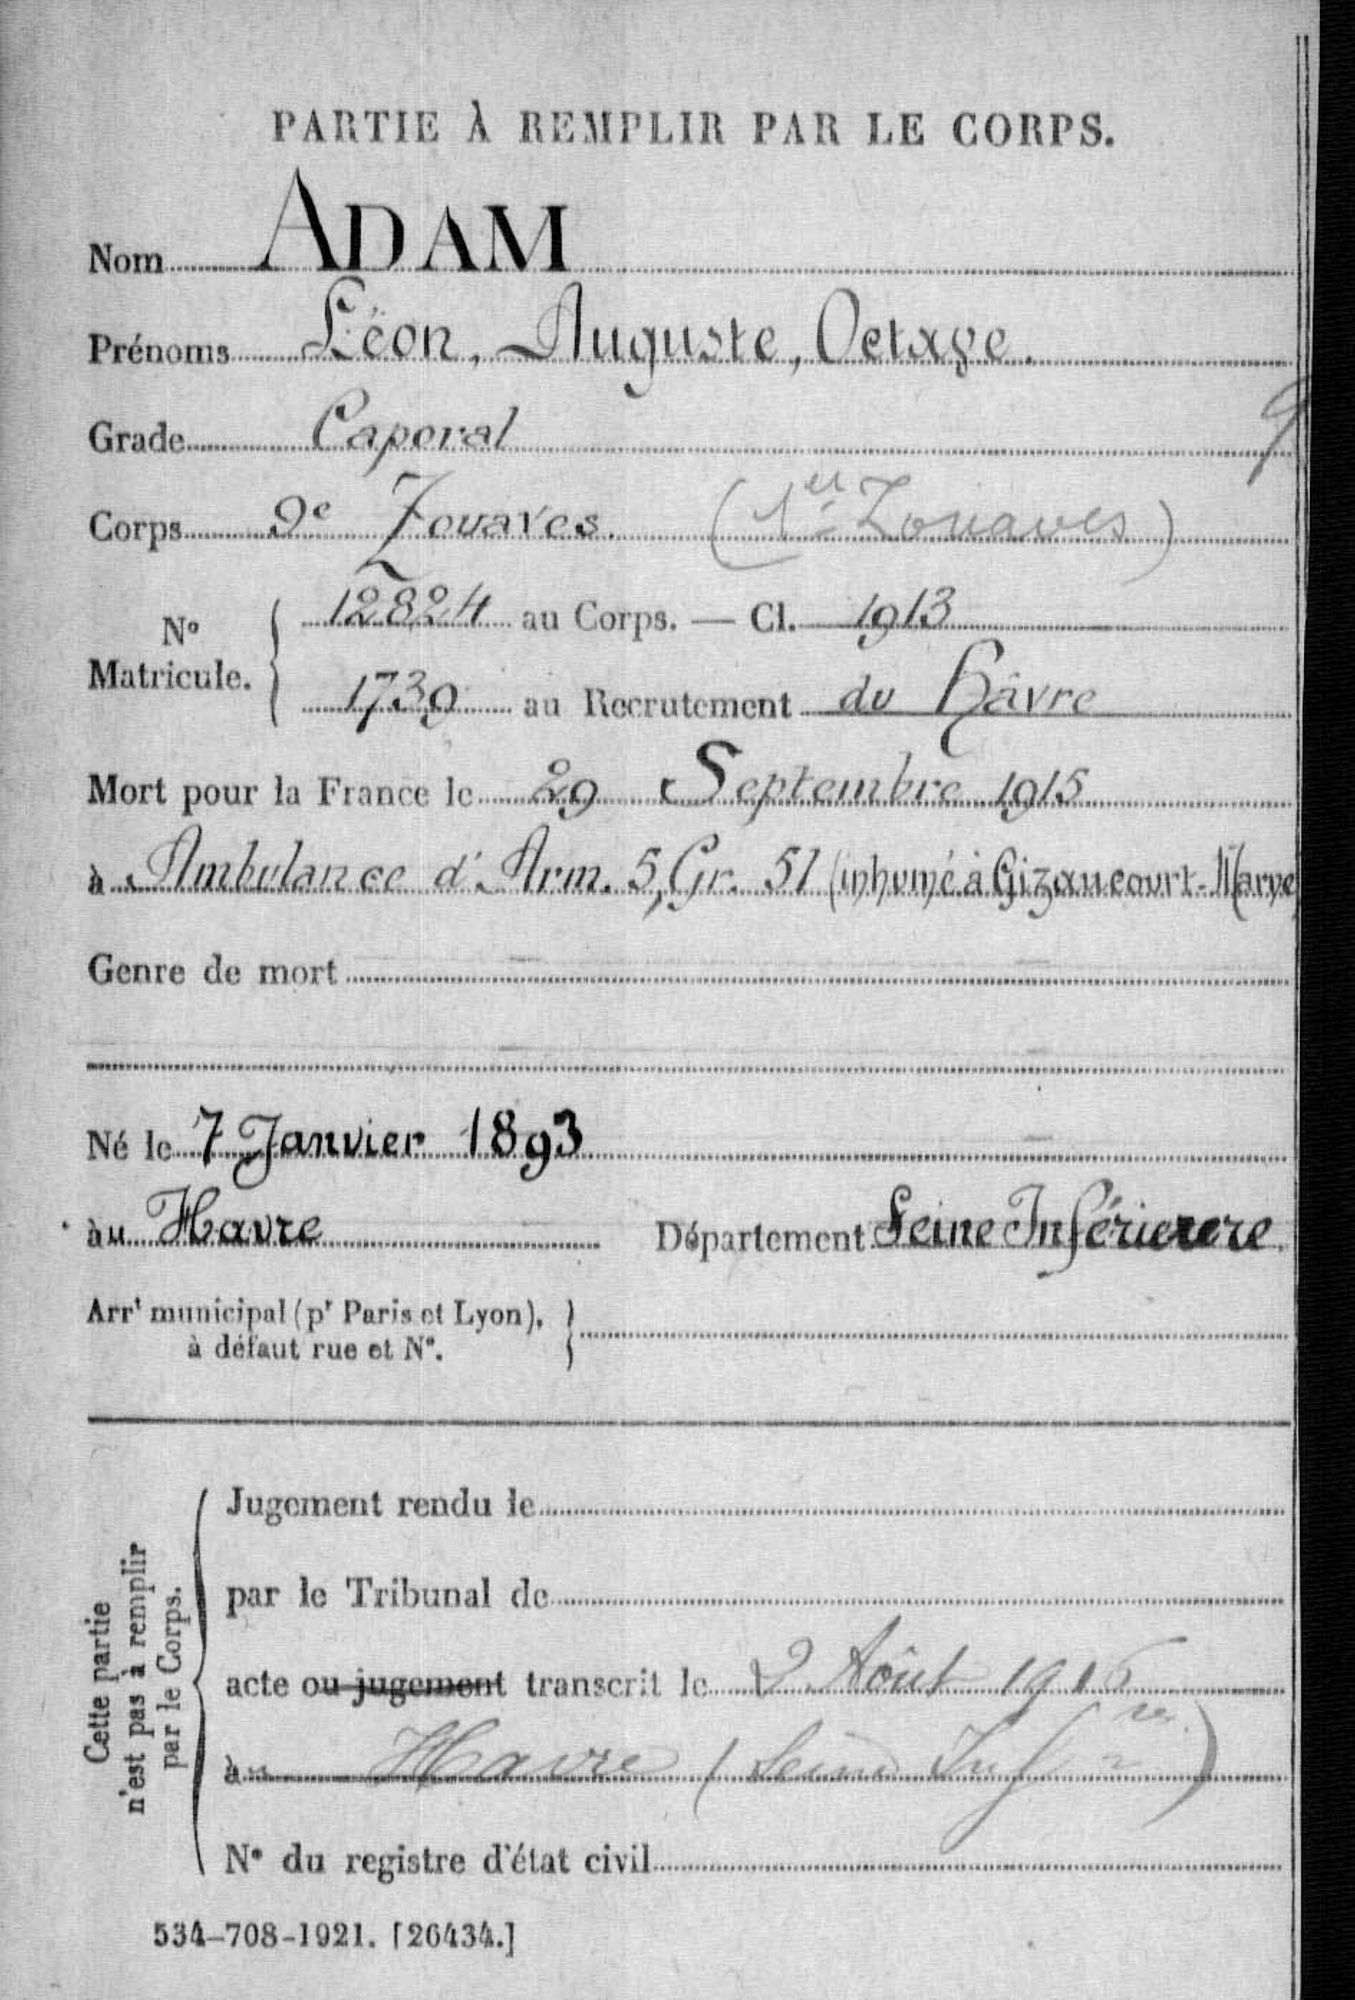 PARTIE À REMPLIR PAR LE CORPS.
Nom ADAM
Prénoms Léon, Auguste, Octave.
Grade Caporal
9
Corps 9e Zouaves. (1er Zouaves)
No Matricule. { 12824 au Corps. — Cl. 1913
1739 au Recrutement du Hâvre
Mort pour la France le 29 Septembre 1915
à Ambulance d'Arm. 5, Gr. 51 (inhumé à Gizaucourt-Marne)
Genre de mort
Né le 7 Janvier 1893
àu Havre Département Seine Inférieure.
Arrt municipal (pr Paris et Lyon),
à défaut rue et No.
Cette partie
n'est pas à remplir
par le Corps.
Jugement rendu le
par le Tribunal de
acte ou jugement transcrit le 2 Août 1916
àu Havre (Seine Infre)
No du registre d'état civil
534-708-1921. [26434.]